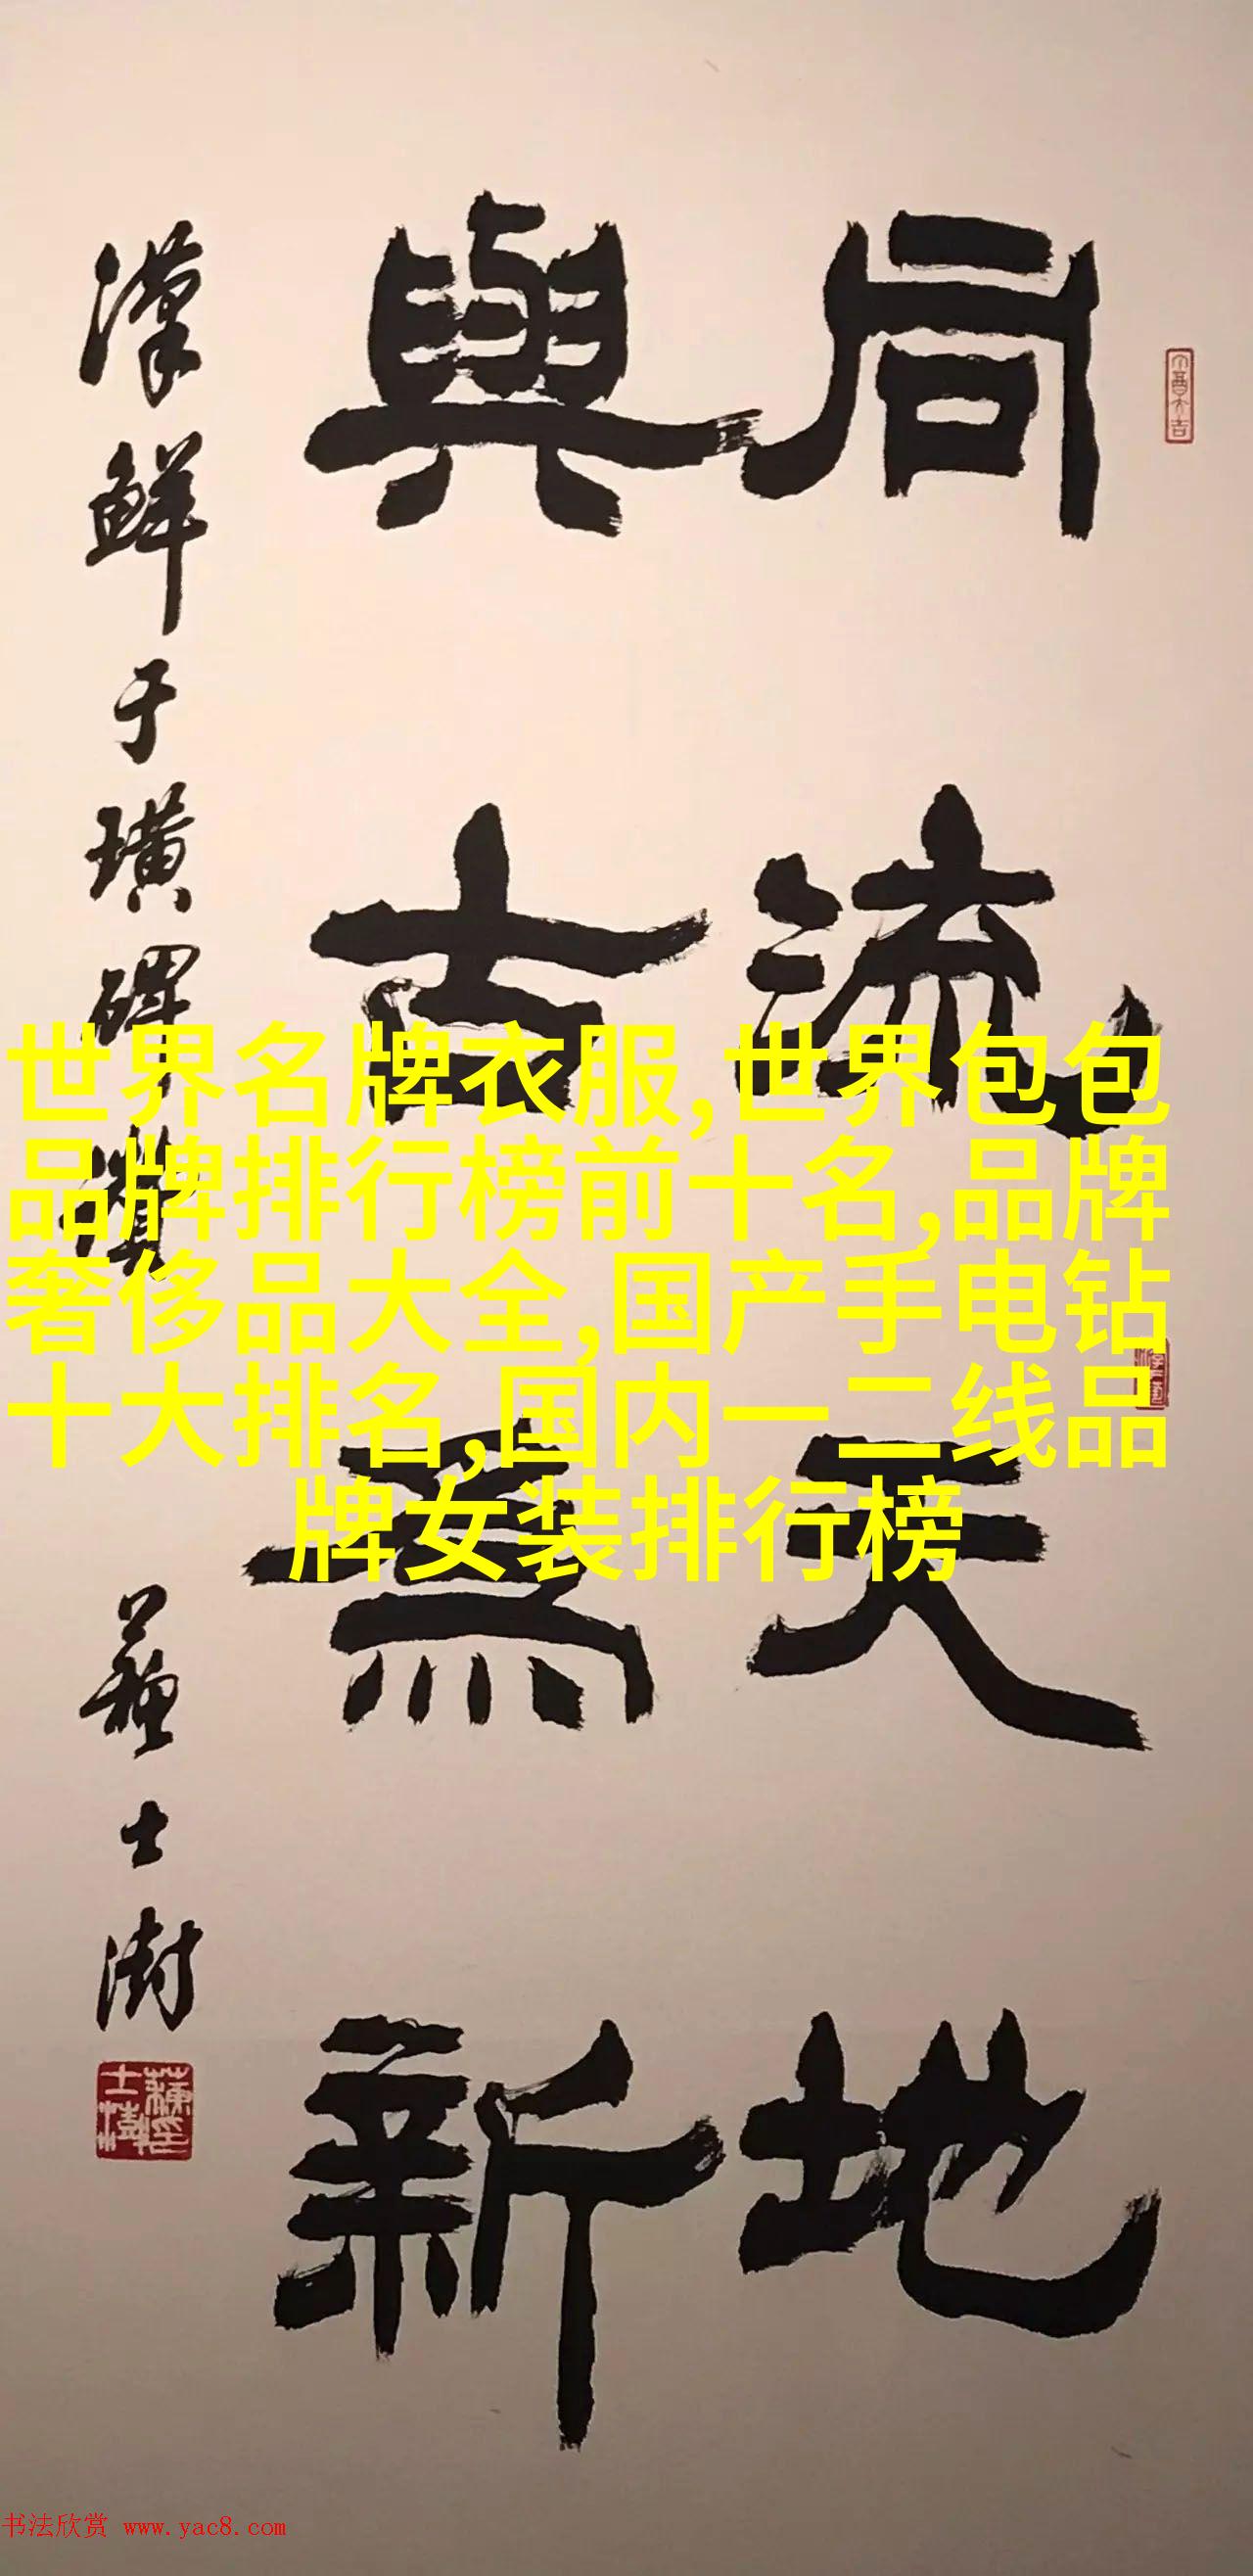 同流天地
與古為新
漢鮮于璜碑讚
蘇士澍
世界名牌衣服,世界包包
品牌排行榜前十名,品牌
奢侈品大全,国产手电钻
十大排名,国内一二线品
牌女装排行榜
书法欣赏 www.yac8.com